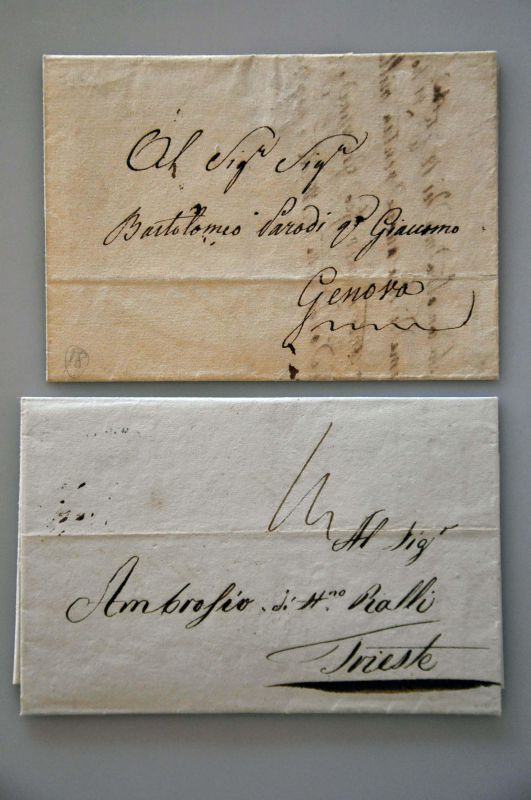 Al Sigr Sigr
Bartolomeo Parodi qr Giacomo
Genova
18
Al Sigr
Ambrosio di Stno Ralli
Trieste